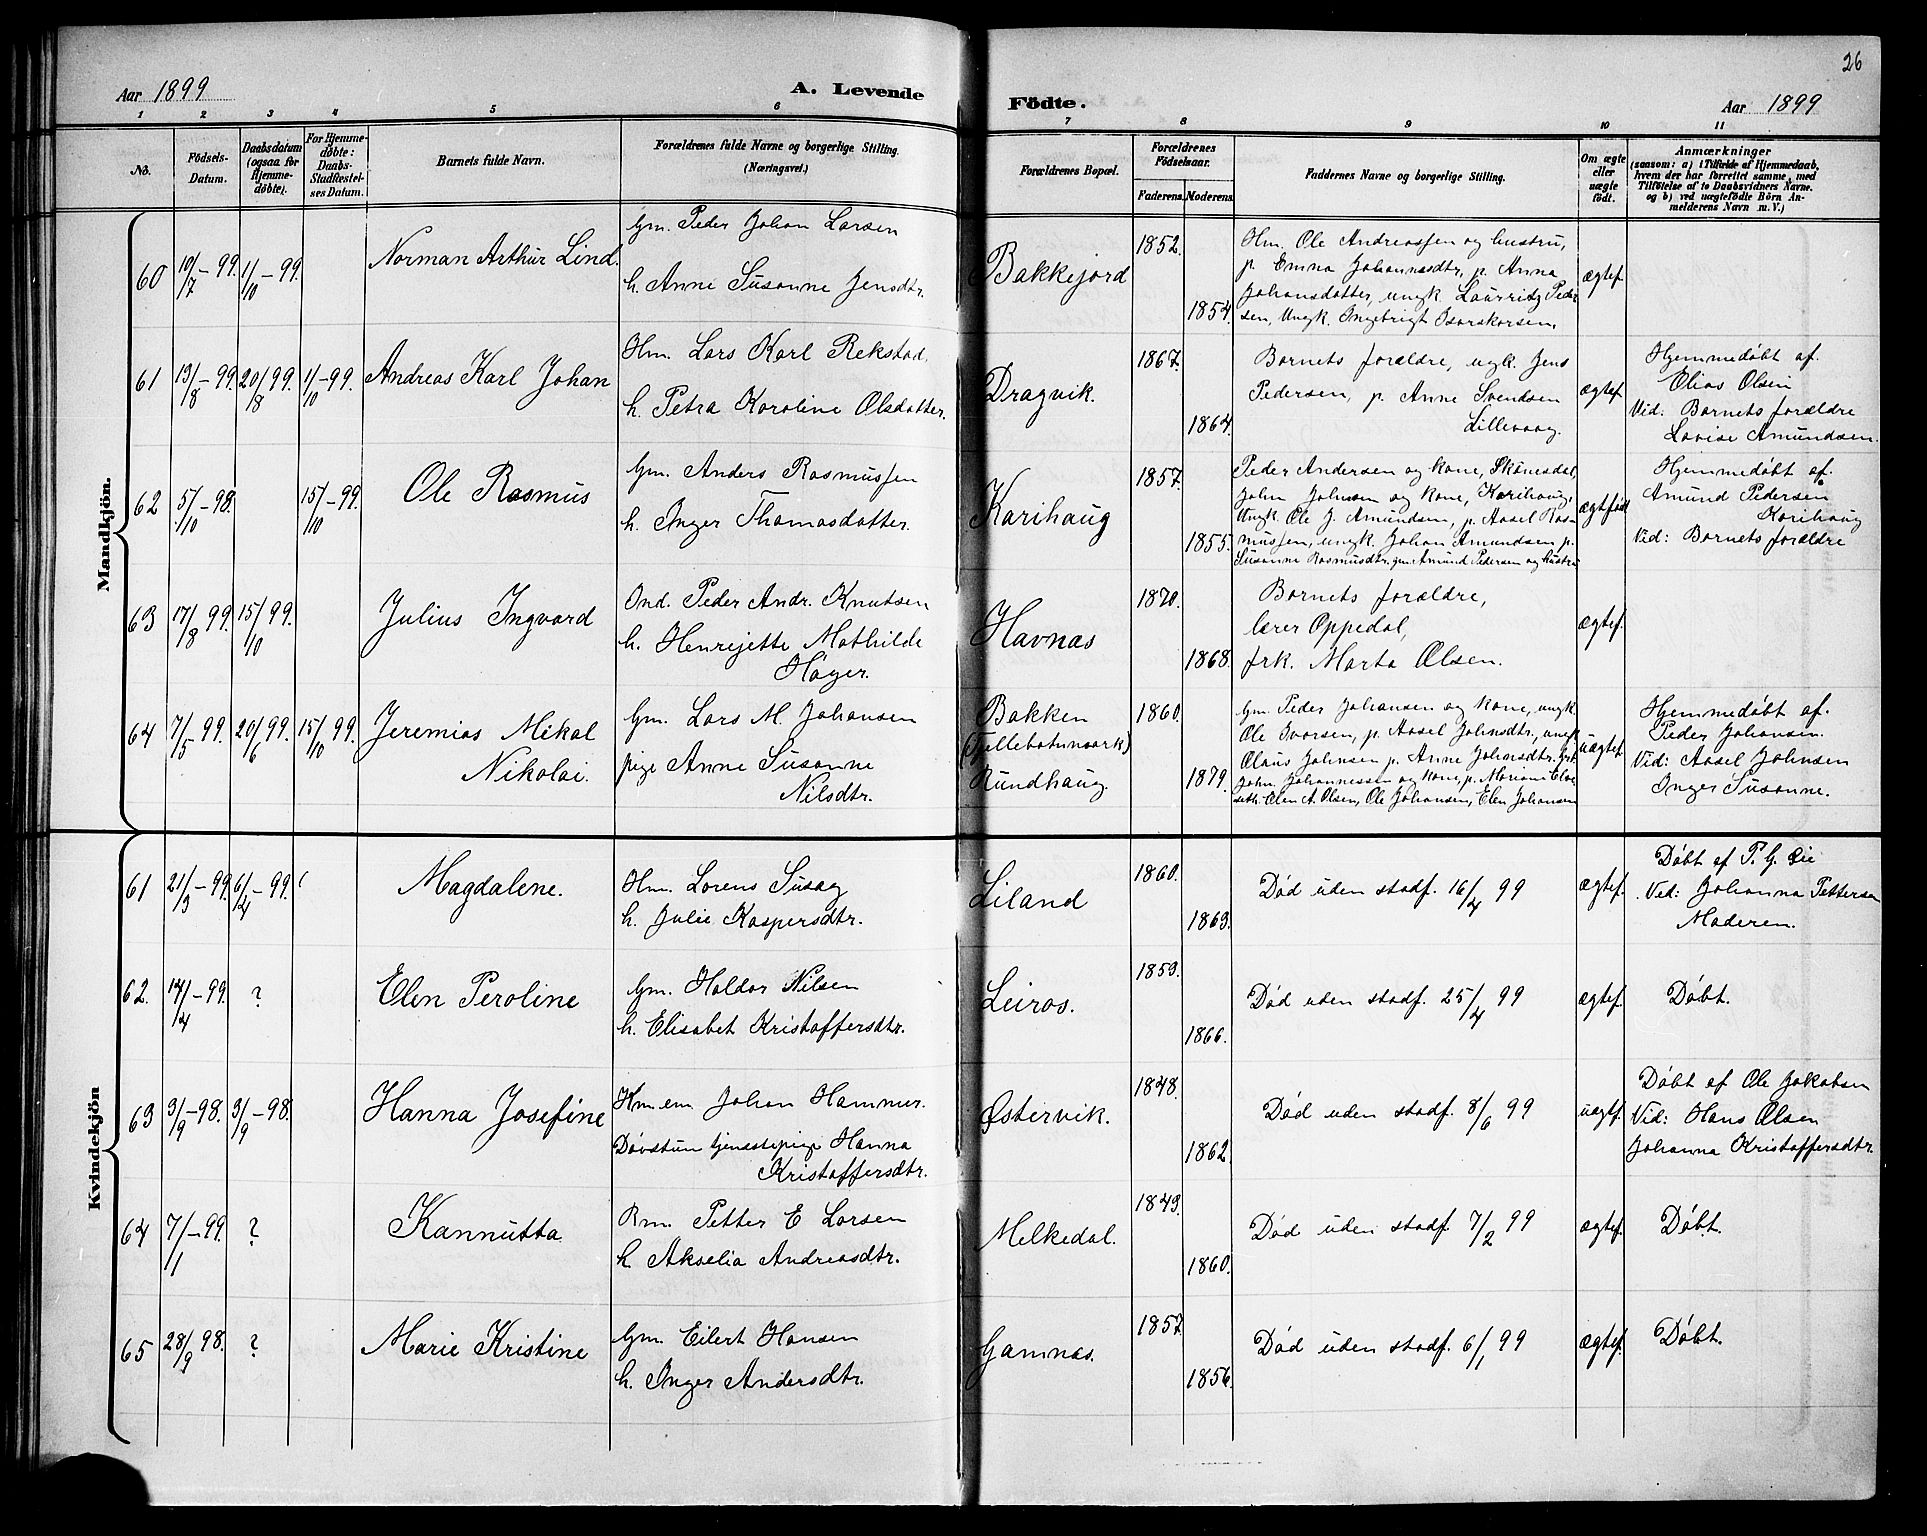 26
Aar 1899
A. Levende
Födte.
Aar 1899
1 2 3 4 5 6 7 8 9 10 11
No.
Födsels-
Datum.
Daabsdatum
(ogsaa for
Hjemme-
döbte).
For Hjemme-
döbte:
Daabs-
Stadfæstel-
ses Datum.
Barnets fulde Navn.
Forældrenes fulde Navne og borgerlige Stilling.
(Næringsvei.)
Forældrenes Bopæl.
Forældrenes
Födselsaar.
Faderens.
Moderens.
Faddernes Navne og borgerlige Stilling.
Om ægte
eller
uægte
födt.
Anmærkninger
(saasom: a) i Tilfælde af Hjemmedaab,
hvem der har forrettet samme, med
Tilföielse af to Daabsvidners Navne.
og b) ved uægtefödte Börn An-
melderens Navn m. V.)
Mandkjön.
60
10/7 - 99.
1/10 - 99.
Norman Arthur Lind.
Gm. Peder Johan Larsen
h. Anne Susanne Jensdtr.
Bakkejord
1852.
1854.
Hm. Ole Andreassen og hustru,
p. Emma Johannasdtr, p. Anna
Johansdatter, ungk. Lauritz Peder
sen, Ungk. Ingebrigt
ægtef.
61
13/8 - 99.
20/8 99.
1/10 - 99.
Andreas Karl Johan
Hm. Lars Karl Rekstad.
h. Petra Karoline Olsdatter.
Dragvik.
1867.
1864.
Barnets forældre, ugk. Jens
Pedersen, p. Anne Svendsen
Lillevaag.
ægtef.
Hjemmedøbt af.
Elias Olsen
Vid: Barnets forældre
Lovise Amundsen.
62
5/10 - 98.
15/10 - 99.
Ole Rasmus
Gm. Anders Rasmussen
h. Inger Thomasdatter.
Karihaug
1857.
1855.
Peder Andersen og kone, Skånesdal,
John Johnsen og kone, Karihaug,
Ungk. Ole J. Amundsen, p. Aasel Ras-
mussen, ungk. Johan Amundsen p.
Susanne Rasmusdtr. gm. Amund Pedersen og hustru
ægtefødt
Hjemmedøbt af.
Amund Pedersen
Karihaug
Vid: Barnets forældre
63
17/8 99.
15/10 99.
Julius Ingvard
Ond. Peder Andr. Knutsen
h. Henrijette Mathilde
Høyer.
Havnas
1870.
1868.
Barnets forældre,
lærer Oppedal,
frk. Marta Olsen.
ægtef.
64
7/5 - 99.
20/6 99.
15/10 99.
Jeremias Mikal
Nikolai.
Gm. Lars M. Johansen
pige Anne Susanne
Nilsdtr.
Bakken
Rundhaug.
1860.
1879.
Gm. Peder Johansen og kone, ungk.
Ole Ivarsen, p. Aasel Johnsdtr., ungk
Olaus Johnsen p. Anne Johnsdtr.
John Johannessen og kone, p. Mariane Elve
seth. Elen A. Olsen, Ole Johansen, Elen Johansen
uægtef.
Hjemmedøbt af.
Peder Johansen.
Vid: Aasel Johnsen
Inger Susanne.
Kvindekjön
61
21/3 - 99.
6/4 - 99.
Magdalene.
Hm. Lorens Susæg
h. Julie Kaspersdtr.
Liland
1860.
1869.
Død uden stadf. 16/4 99
ægtef.
Døbt af P. G. Lie
Vid: Johanna Pettersen
Moderen.
62.
14/4 - 99.
?
Elen Peroline
Gm. Haldor Nilsen
h. Elisabet Kristoffersdtr.
Leiros.
1859.
1866.
Død uden stadf. 25/4 99
ægtef.
Døbt.
63
3/9 - 98.
3/9 - 98.
Hanna Josefine
Hm. em Johan Hammer.
Døvstum tjenestepige Hanna
Kristoffersdtr.
Østervik.
1848.
1862.
Død uden stadf. 8/6 99
uægtef.
Døbt af Ole Jakobsen
Vid: Hans Olsen
Johanna Kristoffersdtr.
64
7/1 - 99.
?
Kannutta
Rm. Petter E Larsen
h. Akselia Andreasdtr.
Melkedal.
1849.
1860.
Død uden stadf. 7/2 99
ægtef.
Døbt.
65
28/9 98.
?
Marie Kristine
Gm. Eilert Hansen
h. Inger Andersdtr.
Gamnas.
1857.
1856.
Død uden stadf. 6/1 99
ægtef.
Døbt.